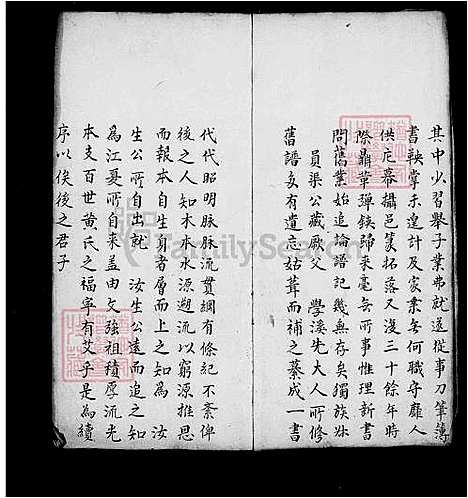 其中少習舉子業弗就遂從事刀筆簿
書鞅掌未遑計及家業無何職守靡人
供庀幕攝邑篆拓落又淺三十餘年時
際鼎革彈鋏歸來毫無所事性理新書
問舊業始追論譜記幾無存矣獨族叔
員渠公藏厥父 學溪先大人所修
舊譜多有遺忘姑葺而補之纂成一書
代代昭明脉脉流貫綱有條紀不紊俾
後之人知木本水源遡流以窮源推思
而報本自生身者層而上之知為 汝
生公所自出就 汝生公遠而追之知
為江夏所自来盖由文強祖積厚流光
本支百世黄氏之福寧有艾乎是為續
序以俟後之君子
FamilySearch